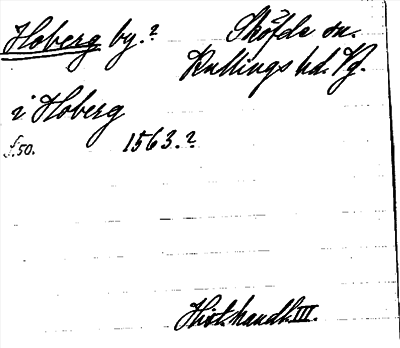 Hoberg by.? Sköfde sn.
Kullings hd. Vg.
i Hoberg
f.50. 1563.?
Hist. handl. III.